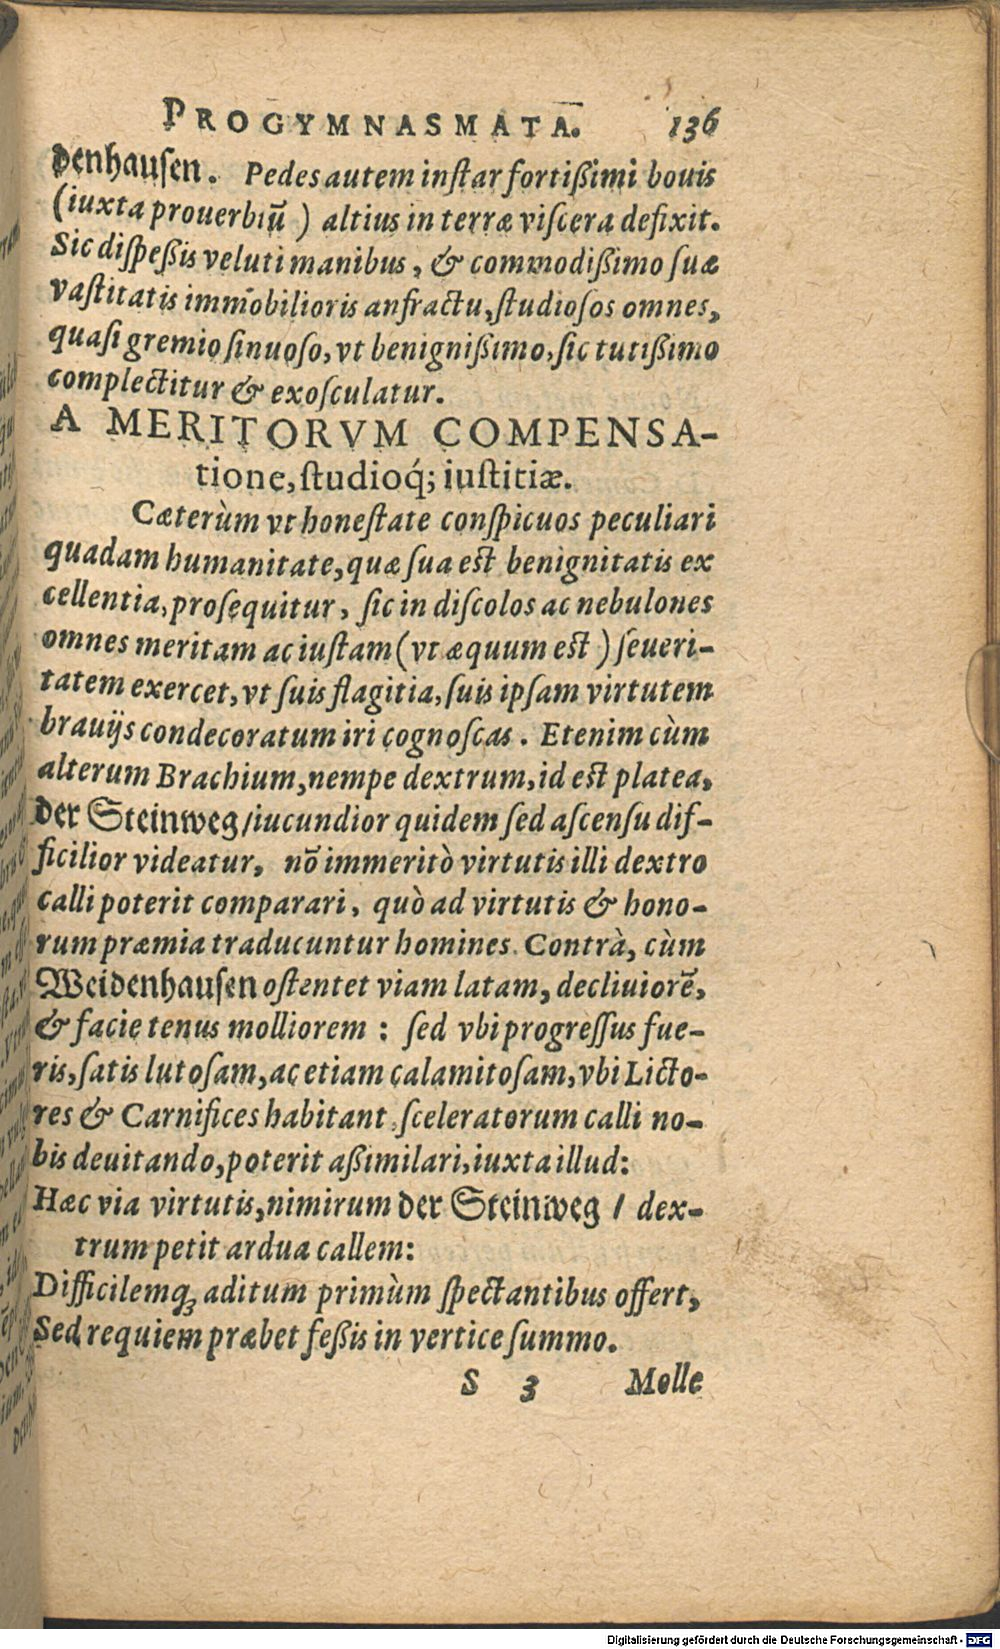 PROGYMNASMATA. 136
denhauſen. Pedes autem inſtar fortißimi bouis
(iuxta prouerbiū) altius in terræ viſcera defixit.
Sic diſpeßis veluti manibus, & commodißimo ſuæ
vaſtitatis immobilioris anfractu, ſtudioſos omnes,
quaſi gremio ſinuoſo, vt benignißimo, ſic tutißimo
complectitur & exoſculatur.
A MERITORVM COMPENSA-
tione, ſtudioq́; iuſtitiæ.
Cæterùm vt honeſtate conſpicuos peculiari
quadam humanitate, quæ ſua est benignitatis ex
cellentia, proſequitur, ſic in diſcolos ac nebulones
omnes meritam ac iuſtam (vt æquum est) ſeueri-
tatem exercet, vt ſuis flagitia, ſuis ipſam virtutem
brauijs condecoratum iri cognoſcas. Etenim cùm
alterum Brachium, nempe dextrum, id est platea,
der Steinweg/ iucundior quidem ſed aſcenſu dif-
ficilior videatur, nō immeritò virtutis illi dextro
calli poterit comparari, quò ad virtutis & hono-
rum præmia traducuntur homines. Contrà, cùm
Weidenhauſen oſtentet viam latam, decliuiorē,
& facie tenus molliorem: ſed vbi progreſſus fue-
ris, ſatis lutoſam, ac etiam calamitoſam, vbi Licto-
res & Carnifices habitant, ſceleratorum calli no-
bis deuitando, poterit aßimilari, iuxta illud:
Hæc via virtutis, nimirum der Steinweg / dex-
trum petit ardua callem:
Difficilemq; aditum primùm ſpectantibus offert,
Sed requiem præbet feßis in vertice ſummo.
S 3 Molle
Digitalisierung gefördert durch die Deutsche Forschungsgemeinschaft - DFG